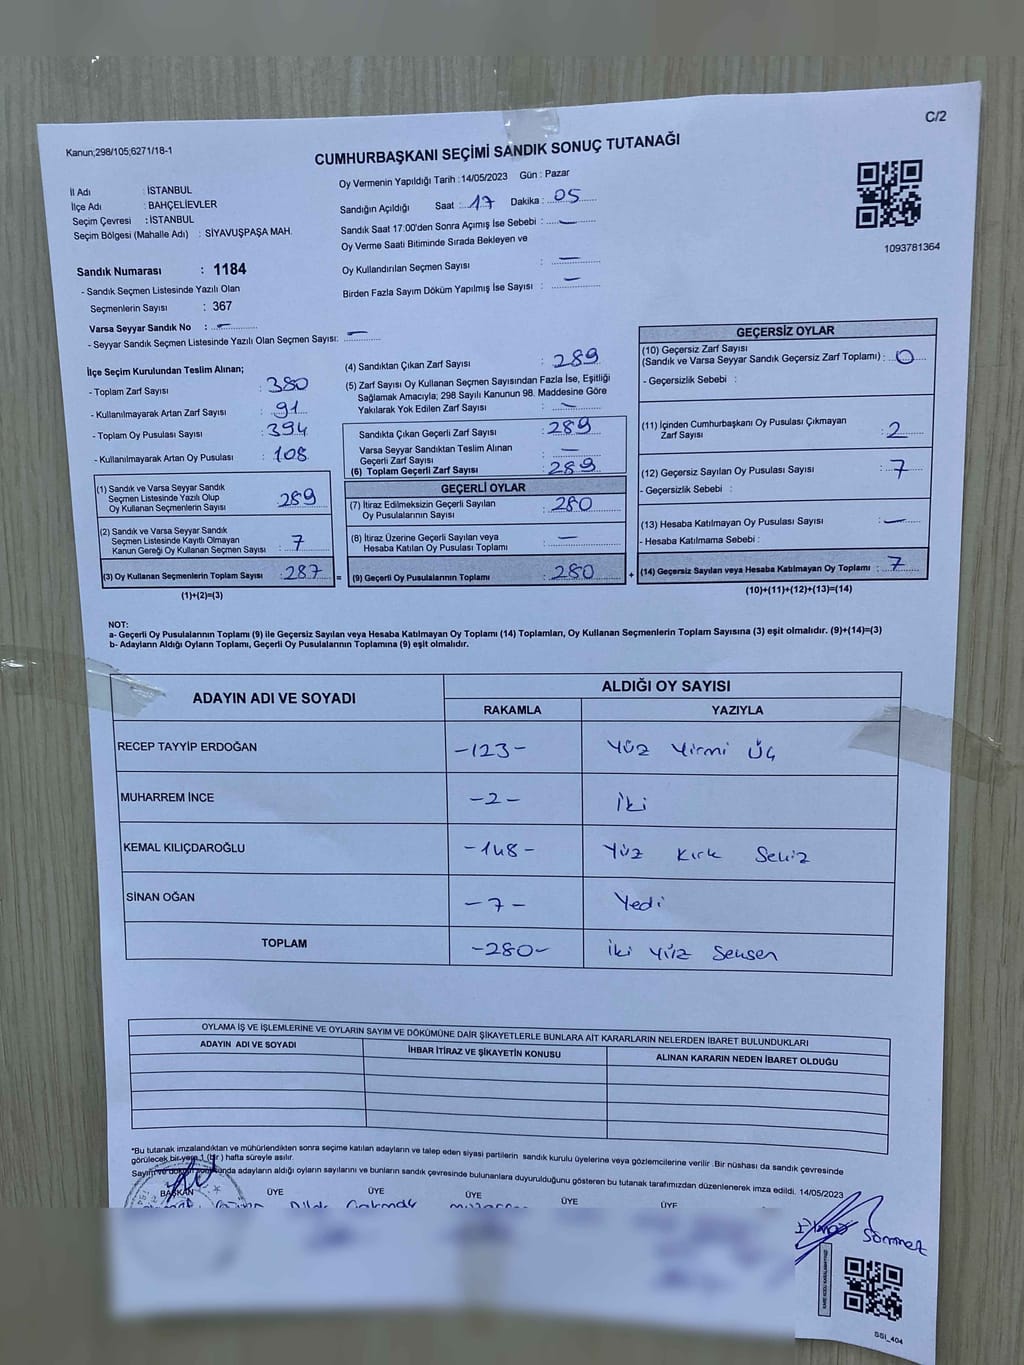 C/2
Kanun;298/105;6271/18-1
CUMHURBAŞKANI SEÇİMİ SANDIK SONUÇ TUTANAĞI
İl Adı : İSTANBUL
İlçe Adı : BAHÇELİEVLER
Seçim Çevresi : İSTANBUL
Seçim Bölgesi (Mahalle Adı) : SİYAVUŞPAŞA MAH.
Sandık Numarası : 1184
- Sandık Seçmen Listesinde Yazılı Olan
Seçmenlerin Sayısı : 367
Varsa Seyyar Sandık No : –
- Seyyar Sandık Seçmen Listesinde Yazılı Olan Seçmen Sayısı: –
Oy Vermenin Yapıldığı Tarih : 14/05/2023 Gün : Pazar
Sandığın Açıldığı Saat : 17 Dakika : 05
Sandık Saat 17:00'den Sonra Açımış İse Sebebi : –
Oy Verme Saati Bitiminde Sırada Bekleyen ve
Oy Kullandırılan Seçmen Sayısı : –
Birden Fazla Sayım Döküm Yapılmış İse Sayısı : –
1093781364
İlçe Seçim Kurulundan Teslim Alınan;
- Toplam Zarf Sayısı : 380
- Kullanılmayarak Artan Zarf Sayısı : 91
- Toplam Oy Pusulası Sayısı : 394
- Kullanılmayarak Artan Oy Pusulası : 108
(1) Sandık ve Varsa Seyyar Sandık
Seçmen Listesinde Yazılı Olup
Oy Kullanan Seçmenlerin Sayısı : 289
(2) Sandık ve Varsa Seyyar Sandık
Seçmen Listesinde Kayıtlı Olmayan
Kanun Gereği Oy Kullanan Seçmen Sayısı : 7
(3) Oy Kullanan Seçmenlerin Toplam Sayısı : 287 =
(1)+(2)=(3)
(4) Sandıktan Çıkan Zarf Sayısı : 289
(5) Zarf Sayısı Oy Kullanan Seçmen Sayısından Fazla İse, Eşitliği
Sağlamak Amacıyla; 298 Sayılı Kanunun 98. Maddesine Göre
Yakılarak Yok Edilen Zarf Sayısı : –
Sandıkta Çıkan Geçerli Zarf Sayısı : 289
Varsa Seyyar Sandıktan Teslim Alınan
Geçerli Zarf Sayısı : –
(6) Toplam Geçerli Zarf Sayısı : 289
GEÇERLİ OYLAR
(7) İtiraz Edilmeksizin Geçerli Sayılan
Oy Pusulalarının Sayısı : 280
(8) İtiraz Üzerine Geçerli Sayılan veya
Hesaba Katılan Oy Pusulası Toplamı : –
(9) Geçerli Oy Pusulalarının Toplamı : 280 +
GEÇERSİZ OYLAR
(10) Geçersiz Zarf Sayısı
(Sandık ve Varsa Seyyar Sandık Geçersiz Zarf Toplamı) : 0
- Geçersizlik Sebebi :
(11) İçinden Cumhurbaşkanı Oy Pusulası Çıkmayan
Zarf Sayısı : 2
(12) Geçersiz Sayılan Oy Pusulası Sayısı : 7
- Geçersizlik Sebebi :
(13) Hesaba Katılmayan Oy Pusulası Sayısı : –
- Hesaba Katılmama Sebebi :
(14) Geçersiz Sayılan veya Hesaba Katılmayan Oy Toplamı : 7
(10)+(11)+(12)+(13)=(14)
NOT:
a- Geçerli Oy Pusulalarının Toplamı (9) ile Geçersiz Sayılan veya Hesaba Katılmayan Oy Toplamı (14) Toplamları, Oy Kullanan Seçmenlerin Toplam Sayısına (3) eşit olmalıdır. (9)+(14)=(3)
b- Adayların Aldığı Oyların Toplamı, Geçerli Oy Pusulalarının Toplamına (9) eşit olmalıdır.
ADAYIN ADI VE SOYADI ALDIĞI OY SAYISI
RAKAMLA YAZIYLA
RECEP TAYYİP ERDOĞAN -123- Yüz Yirmi Üç
MUHARREM İNCE -2- İki
KEMAL KILIÇDAROĞLU -148- Yüz Kırk Sekiz
SİNAN OĞAN -7- Yedi
TOPLAM -280- İki Yüz Seksen
OYLAMA İŞ VE İŞLEMLERİNE VE OYLARIN SAYIM VE DÖKÜMÜNE DAİR ŞİKAYETLERLE BUNLARA AİT KARARLARIN NELERDEN İBARET BULUNDUKLARI
ADAYIN ADI VE SOYADI İHBAR İTİRAZ VE ŞİKAYETİN KONUSU ALINAN KARARIN NEDEN İBARET OLDUĞU
*Bu tutanak imzalandıktan ve mühürlendikten sonra seçime katılan adayların ve talep eden siyasi partilerin sandık kurulu üyelerine veya gözlemcilerine verilir. Bir nüshası da sandık çevresinde
görülecek bir yere 1 (bir) hafta süreyle asılır.
Sayım ve döküm sonunda adayların aldığı oyların sayılarını ve bunların sandık çevresinde bulunanlara duyurulduğunu gösteren bu tutanak tarafımızdan düzenlenerek imza edildi. 14/05/2023
BAŞKAN ÜYE ÜYE ÜYE ÜYE ÜYE
SSI_404